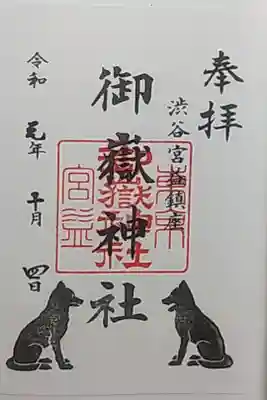 奉拝
渋谷宮益鎮座
御嶽神社
令和元年十月四日
東京
御嶽神社
宮益